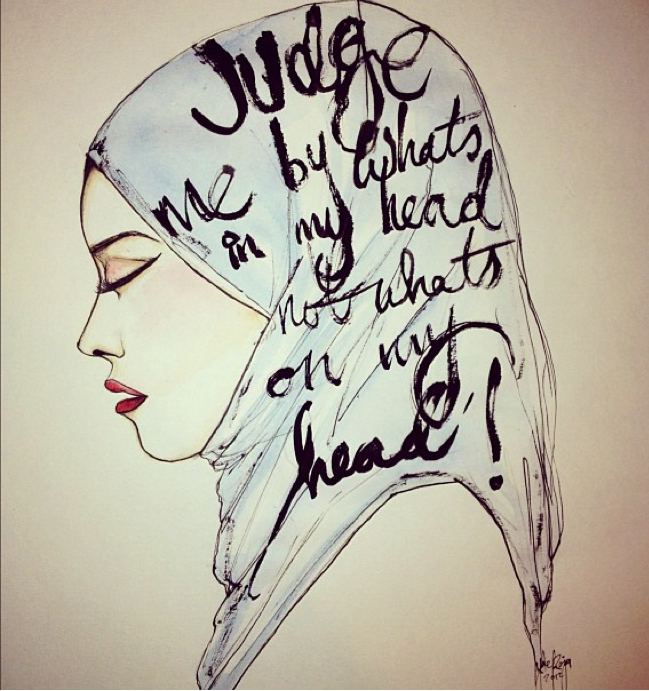 Judge
me by whats
in my head
not whats
on my
head!